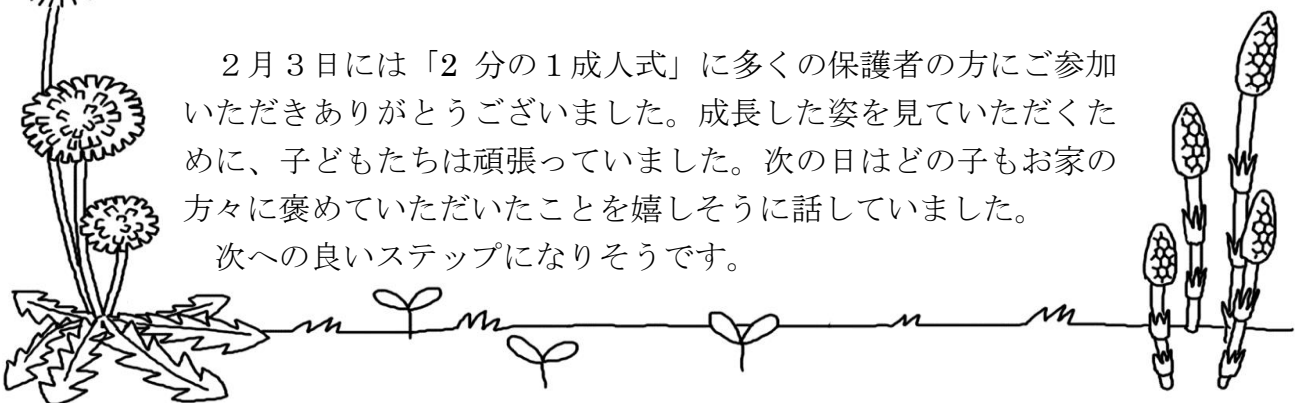 ２月３日には「2 分の１成人式」に多くの保護者の方にご参加
いただきありがとうございました。成長した姿を見ていただくた
めに、子どもたちは頑張っていました。次の日はどの子もお家の
方々に褒めていただいたことを嬉しそうに話していました。
　次への良いステップになりそうです。